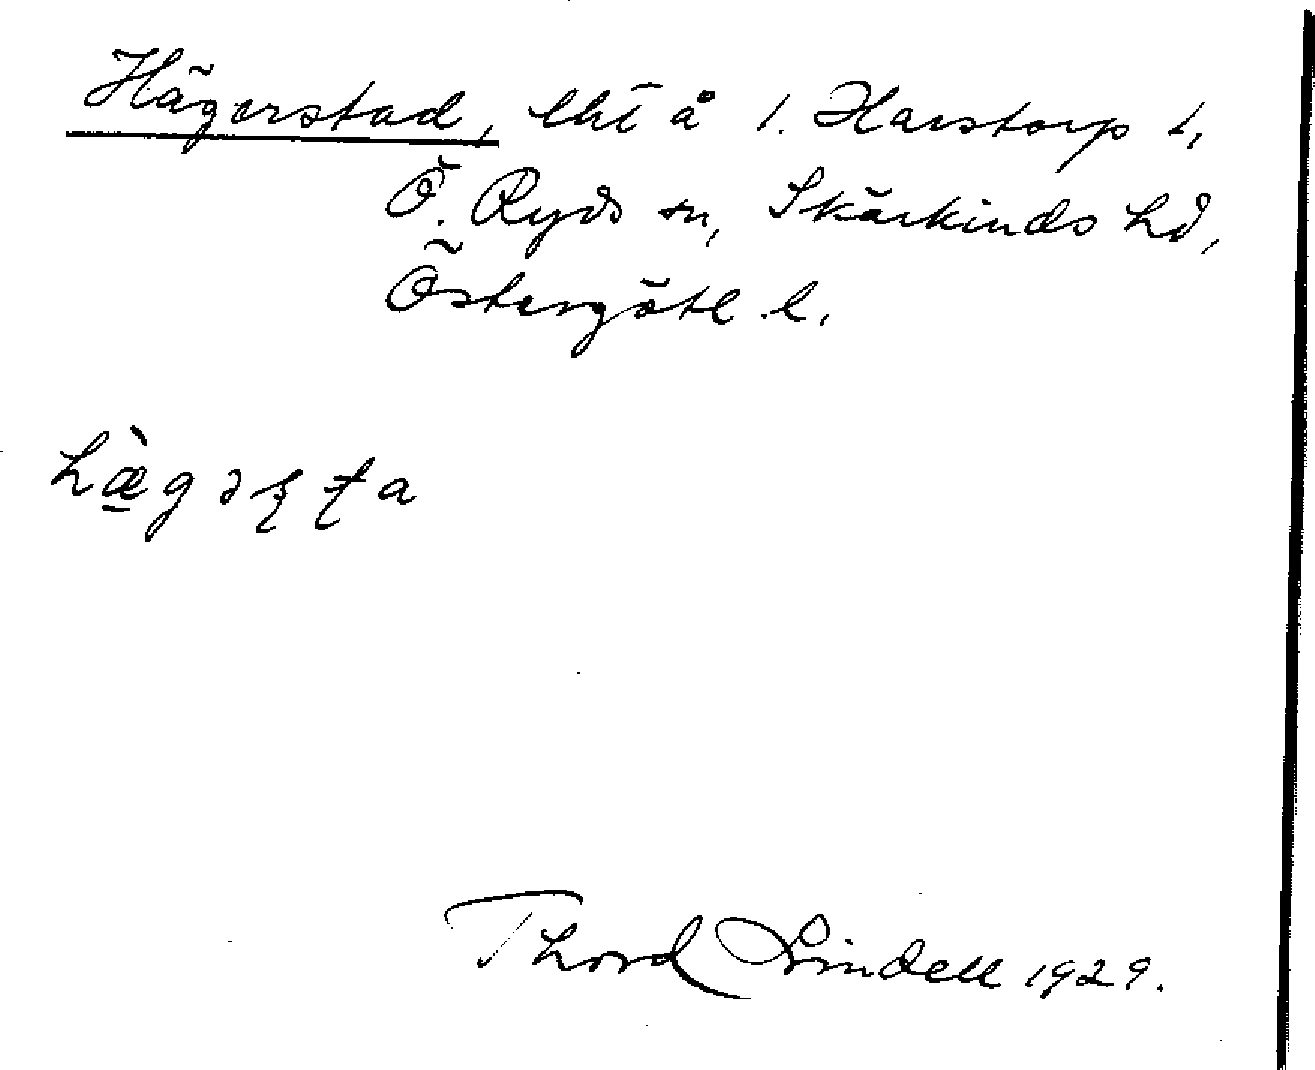 Hägerstad, lht å 1. Harstorp 1,
Ö. Ryds sn, Skärkinds hd,
Östergötl. l.
Thord Lindell 1929.